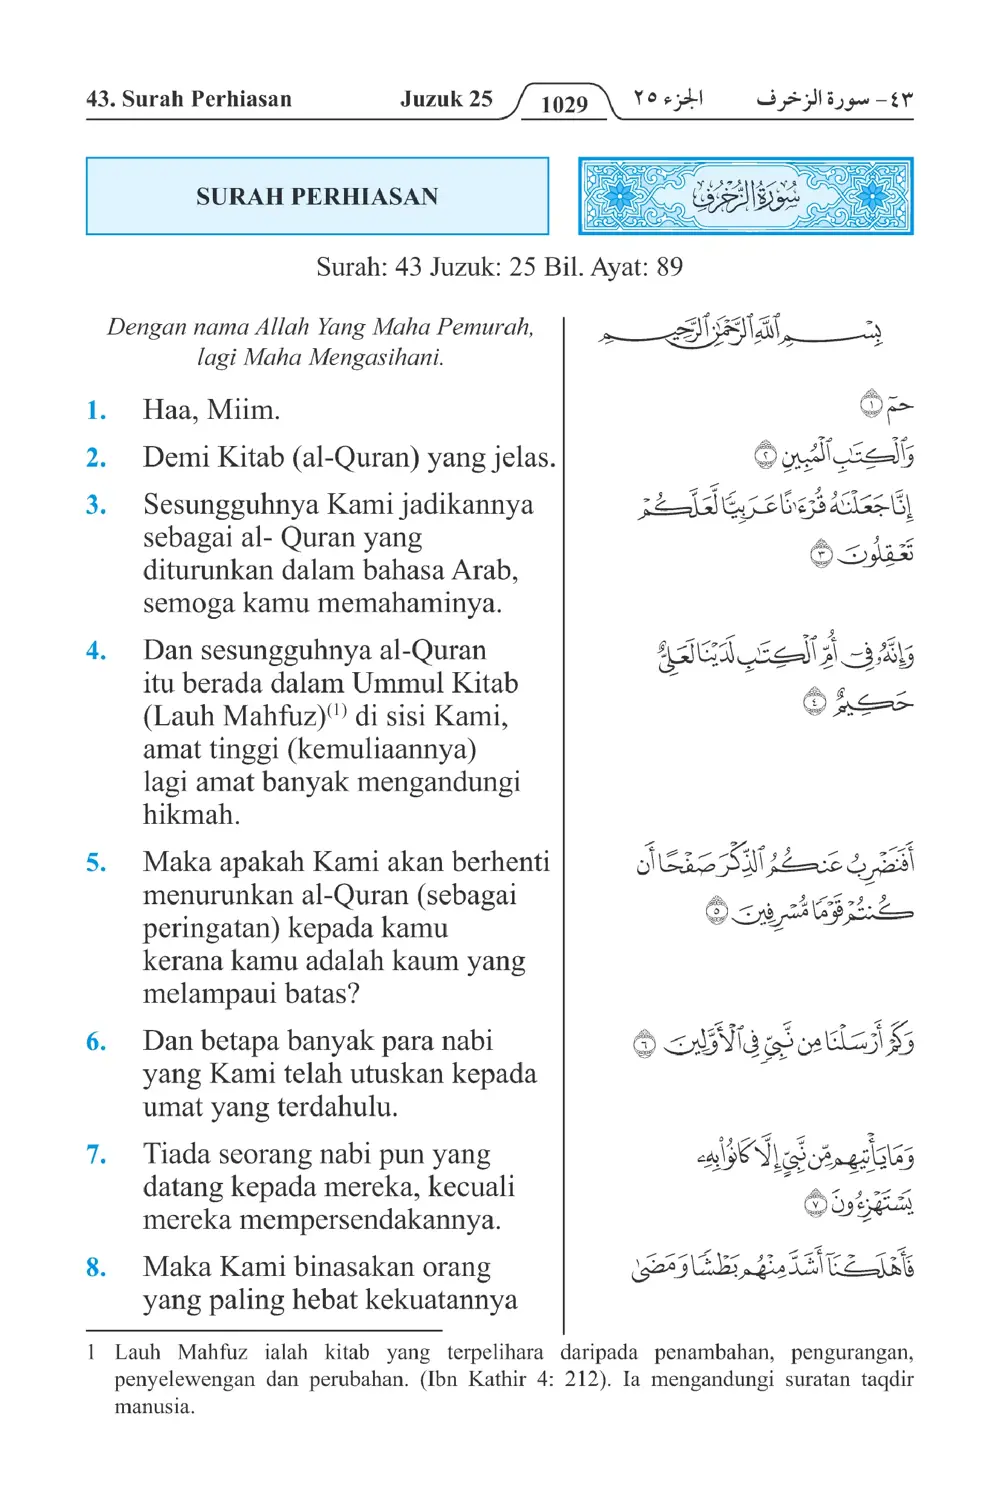 43. Surah Perhiasan Juzuk 25 1029 الجزء ٢٥ ٤٣- سورة الزخرف
SURAH PERHIASAN
سُورَةُ الزُّخْرُفِ
Surah: 43 Juzuk: 25 Bil. Ayat: 89
Dengan nama Allah Yang Maha Pemurah,
lagi Maha Mengasihani.
بِسْمِ ٱللَّهِ ٱلرَّحْمَٰنِ ٱلرَّحِيمِ
1. Haa, Miim.
حمٓ ١
2. Demi Kitab (al-Quran) yang jelas.
وَٱلْكِتَٰبِ ٱلْمُبِينِ ٢
3. Sesungguhnya Kami jadikannya
sebagai al- Quran yang
diturunkan dalam bahasa Arab,
semoga kamu memahaminya.
إِنَّا جَعَلْنَٰهُ قُرْءَٰنًا عَرَبِيًّا لَّعَلَّكُمْ
تَعْقِلُونَ ٣
4. Dan sesungguhnya al-Quran
itu berada dalam Ummul Kitab
(Lauh Mahfuz)(1) di sisi Kami,
amat tinggi (kemuliaannya)
lagi amat banyak mengandungi
hikmah.
وَإِنَّهُۥ فِىٓ أُمِّ ٱلْكِتَٰبِ لَدَيْنَا لَعَلِىٌّ
حَكِيمٌ ٤
5. Maka apakah Kami akan berhenti
menurunkan al-Quran (sebagai
peringatan) kepada kamu
kerana kamu adalah kaum yang
melampaui batas?
أَفَنَضْرِبُ عَنكُمُ ٱلذِّكْرَ صَفْحًا أَن
كُنتُمْ قَوْمًا مُّسْرِفِينَ ٥
6. Dan betapa banyak para nabi
yang Kami telah utuskan kepada
umat yang terdahulu.
وَكَمْ أَرْسَلْنَا مِن نَّبِىٍّ فِى ٱلْأَوَّلِينَ ٦
7. Tiada seorang nabi pun yang
datang kepada mereka, kecuali
mereka mempersendakannya.
وَمَا يَأْتِيهِم مِّن نَّبِىٍّ إِلَّا كَانُوا۟ بِهِۦ
يَسْتَهْزِءُونَ ٧
8. Maka Kami binasakan orang
yang paling hebat kekuatannya
فَأَهْلَكْنَآ أَشَدَّ مِنْهُم بَطْشًا وَمَضَىٰ
1 Lauh Mahfuz ialah kitab yang terpelihara daripada penambahan, pengurangan,
penyelewengan dan perubahan. (Ibn Kathir 4: 212). Ia mengandungi suratan taqdir
manusia.